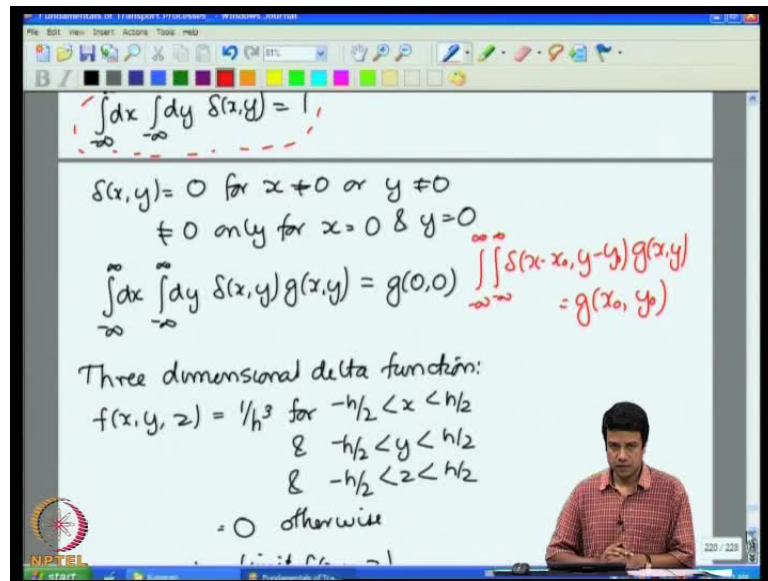 Fundamentals of Transport Processes_ - Windows Journal
File Edit View Insert Actions Tools Help
81%
B I
∫_{-∞}^{∞}dx ∫_{-∞}^{∞}dy δ(x,y) = 1,
δ(x,y) = 0 for x ≠ 0 or y ≠ 0
≠ 0 only for x = 0 & y = 0
∫_{-∞}^{∞}dx ∫_{-∞}^{∞}dy δ(x,y) g(x,y) = g(0,0)
∫_{-∞}^{∞}∫_{-∞}^{∞} δ(x-x₀, y-y₀) g(x,y)
= g(x₀, y₀)
Three dimensional delta function:
f(x, y, z) = 1/h³ for -h/2 < x < h/2
& -h/2 < y < h/2
& -h/2 < z < h/2
= 0 otherwise
NPTEL
220 / 228
start
Fundamentals of Tra...